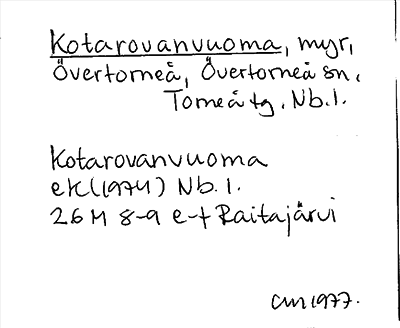 Kotarovanvuoma, myr,
Övertorneå, Övertorneå sn,
Torneå tg. Nb.l.
Kotarovanvuoma
ek(1974) Nb.l.
26M 8-9 e-f Raitajärvi
CM 1977.